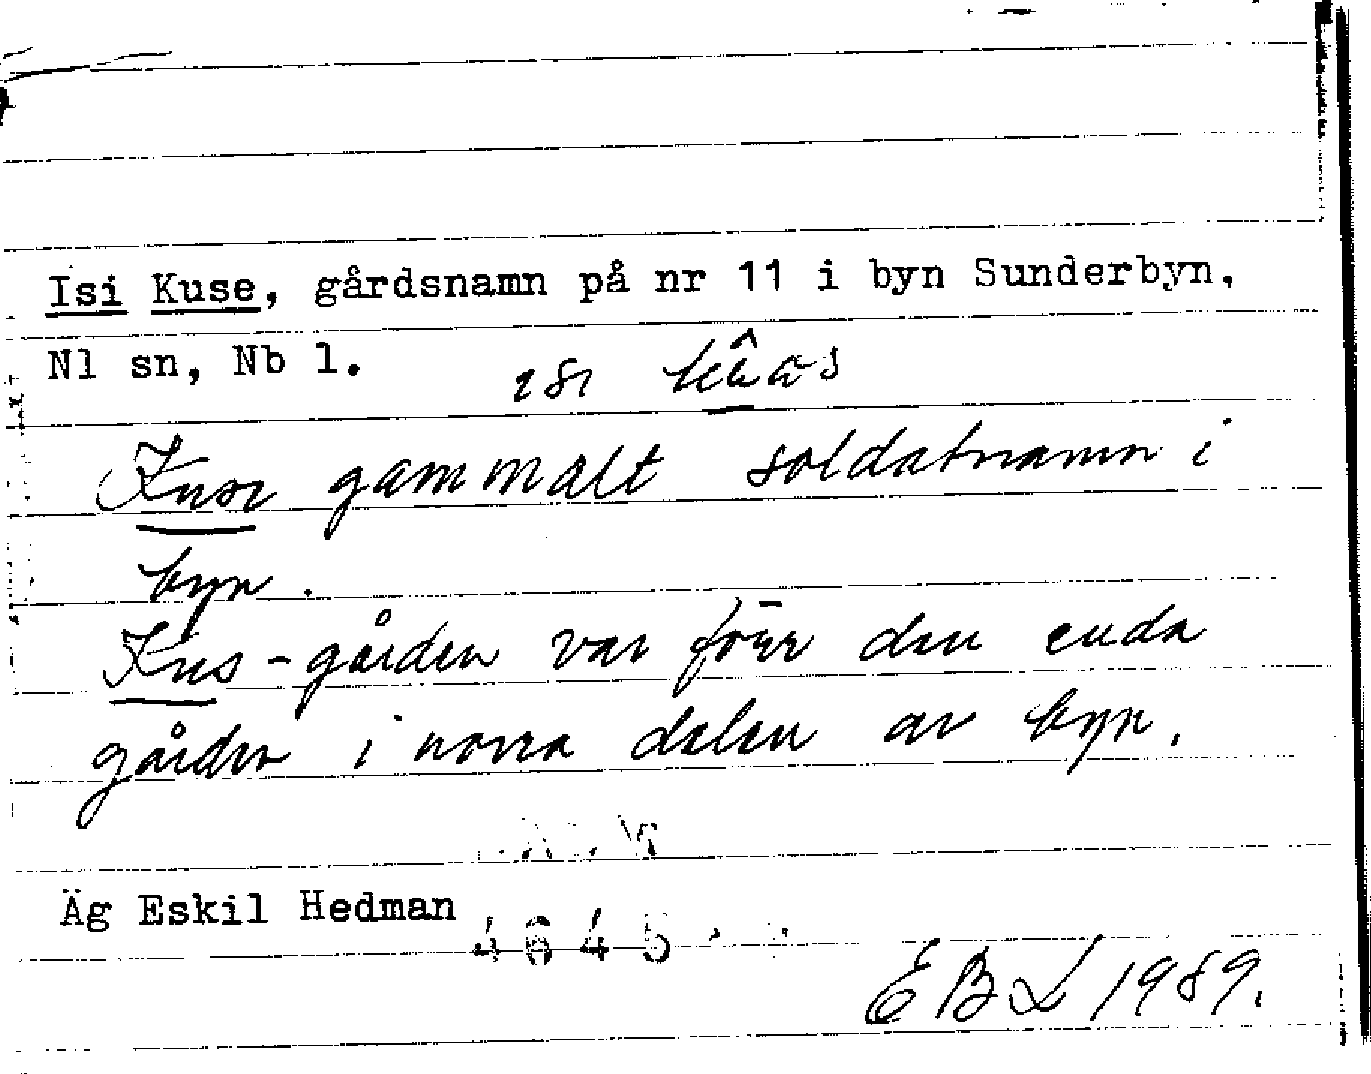 Isi Kuse, gårdsnamn på nr 11 i byn Sunderbyn,
Nl sn, Nb l.
Kuse gammalt soldatnamn i
byn.
Kus-gården var förr den enda
gården i norra delen av byn.
Äg Eskil Hedman
4645
EBL 1989.